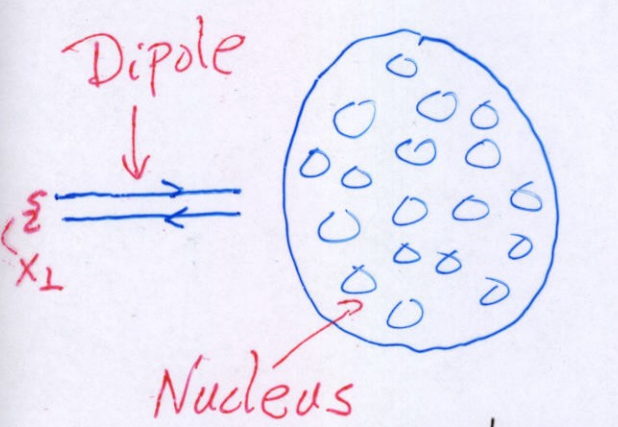 Dipole
x⊥
Nucleus